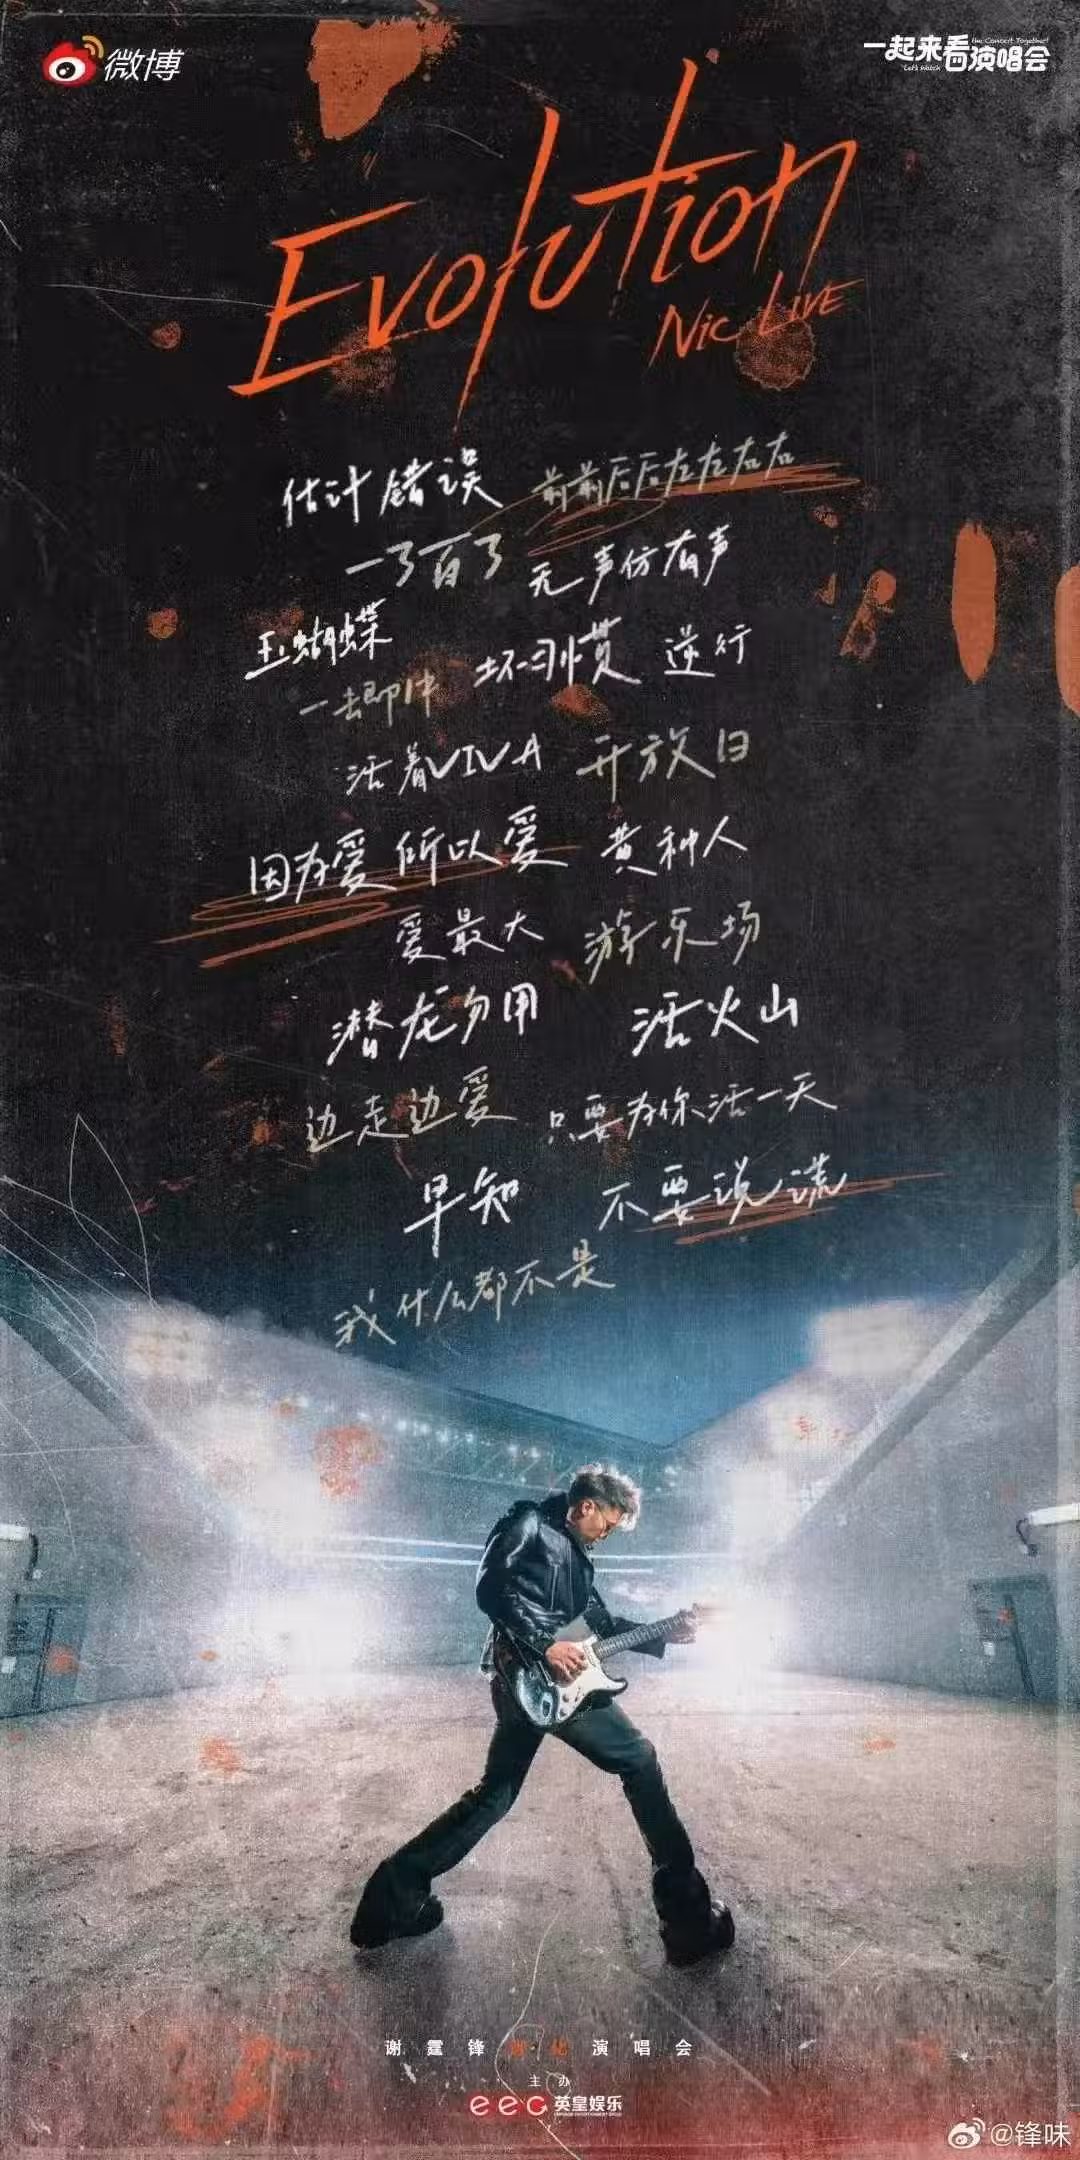 微博
一起来看演唱会
the Concert Together!
Let's Watch
Evolution
Nic LIVE
估计错误 前前后后左左右右
一了百了 无声仿有声
玉蝴蝶
一击即中 坏习惯 逆行
活着VIVA 开放日
因为爱所以爱 黄种人
爱最大 游乐场
潜龙勿用 活火山
边走边爱 只要为你活一天
早知 不要说谎
我什么都不是
谢霆锋进化演唱会
主办
eeg 英皇娱乐
@锋味